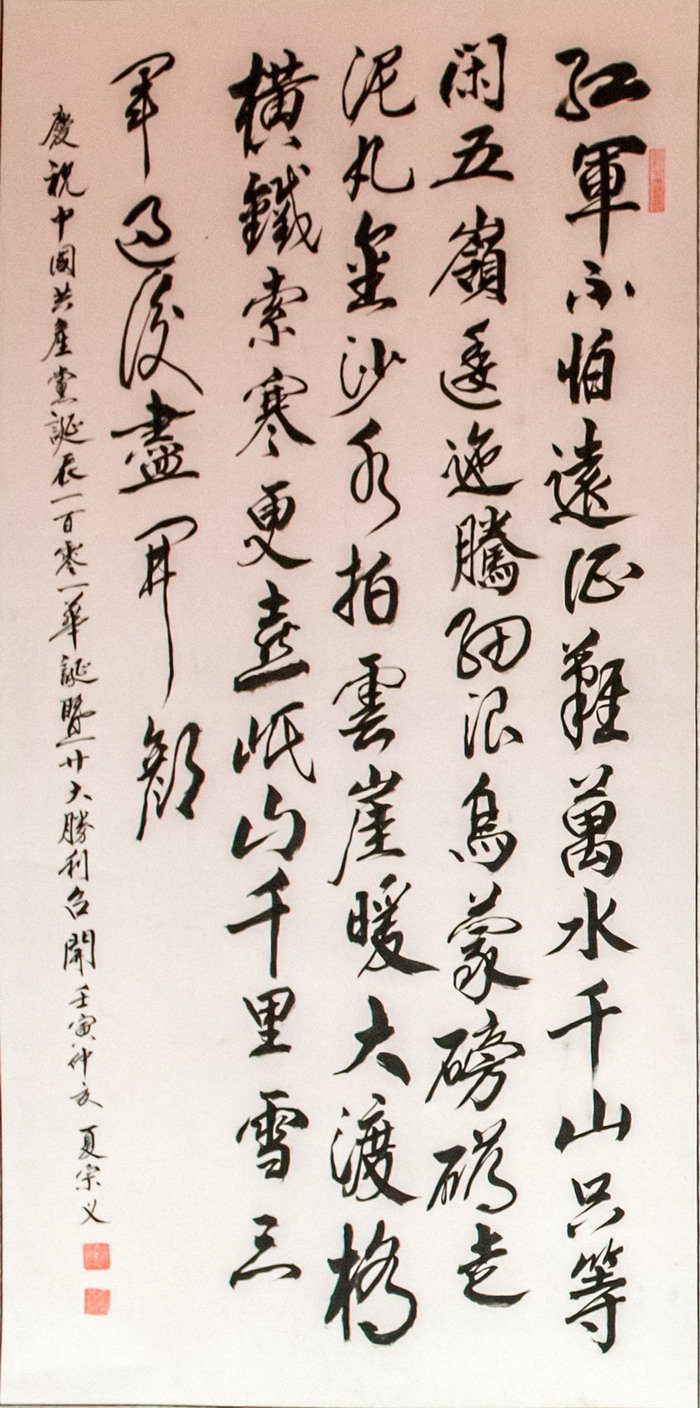 紅軍不怕遠征難萬水千山只等
閑五嶺逶迤騰細浪烏蒙磅礴走
泥丸金沙水拍雲崖暖大渡橋
橫鐵索寒更喜岷山千里雪三
軍過後盡開顏
慶祝中國共產黨誕辰一百零一華誕暨廿大勝利召開壬寅仲夏 夏宗义